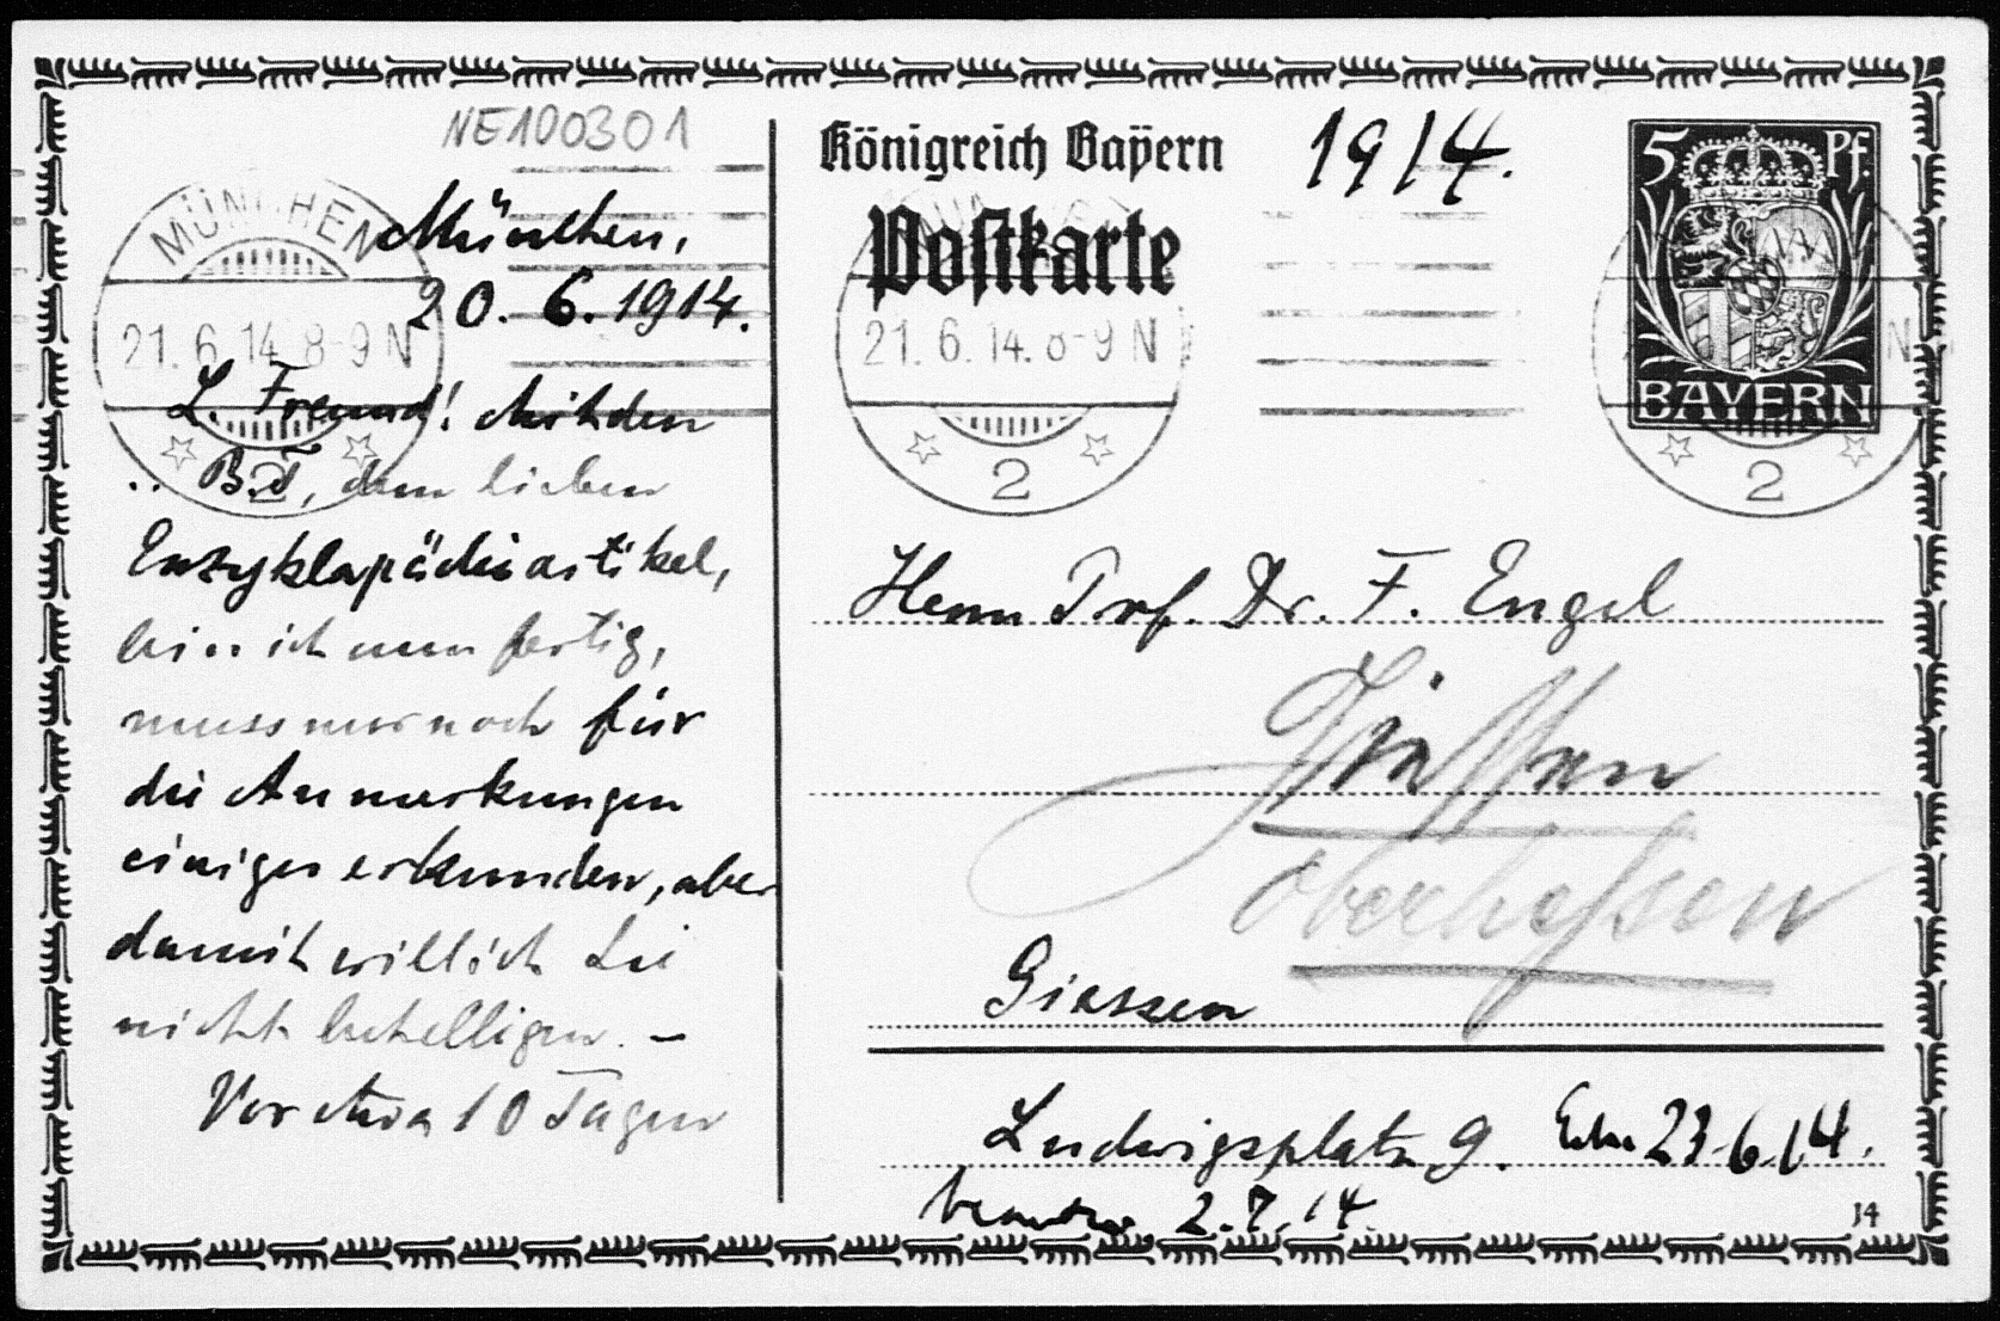 NE100301
MÜNCHEN
21.6.14 8-9 N
2
München,
20. 6. 1914.
L. Freund! Mit den
.. B.T, dem lieben
Enzyklopädieartikel,
bin ich nun fertig,
muss nur noch für
die Anmerkungen
einiges erkunden, aber
damit will ich Sie
nicht behelligen. –
Vor etwa 10 Tagen
Königreich Bayern
1914.
Postkarte
21.6.14. 8-9 N
2
5 Pf.
BAYERN
N
2
Herrn Prof. Dr. F. Engel
Gießen
Oberhessen
Giessen
Ludwigsplatz 9.
23.6.14.
2.7.14.
14